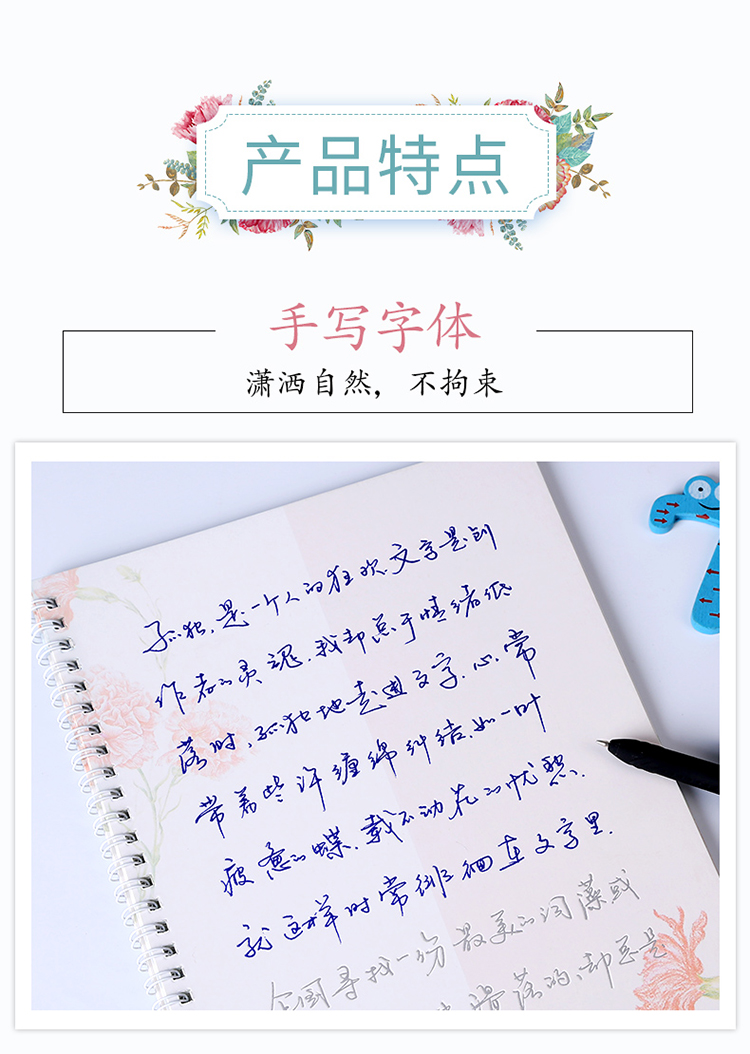 产品特点
手写字体
潇洒自然，不拘束
孤独,是一个人的狂欢.文字是创
作者的灵魂.我却总于情绪低
落时,孤独地走进文字.心,常
常着些许缠绵纠结.如一叶
疲惫的蝶.载不动花的忧愁.
就这样时常徘徊在文字里.
寻找一份最美的词藻或
落的,却总是